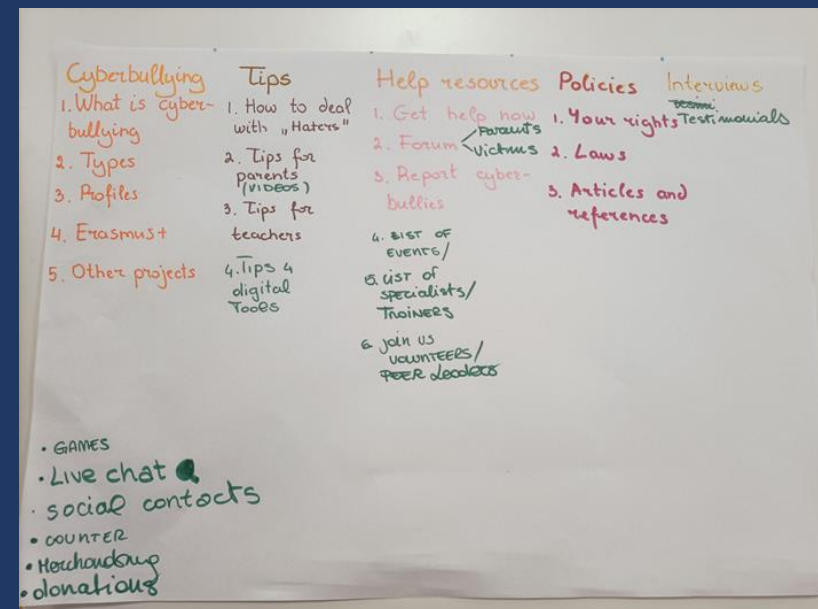 Cyberbullying
1. What is cyber-
bullying
2. Types
3. Profiles
4. Erasmus+
5. Other projects
Tips
1. How to deal
with „Haters"
2. Tips for
parents
(VIDEOS)
3. Tips for
teachers
4. Tips 4
digital
Tools
Help resources
1. Get help now
2. Forum
Parents
Victims
3. Report cyber-
bullies
4. LIST OF
EVENTS/
5. LIST OF
SPECIALISTS/
TRAINERS
6. JOIN US
VOLUNTEERS/
PEER Leaders
Policies
1. Your rights
2. Laws
3. Articles and
references
Interviews
Testimonials
• GAMES
• Live chat
• social contacts
• COUNTER
• Merchandising
• donations